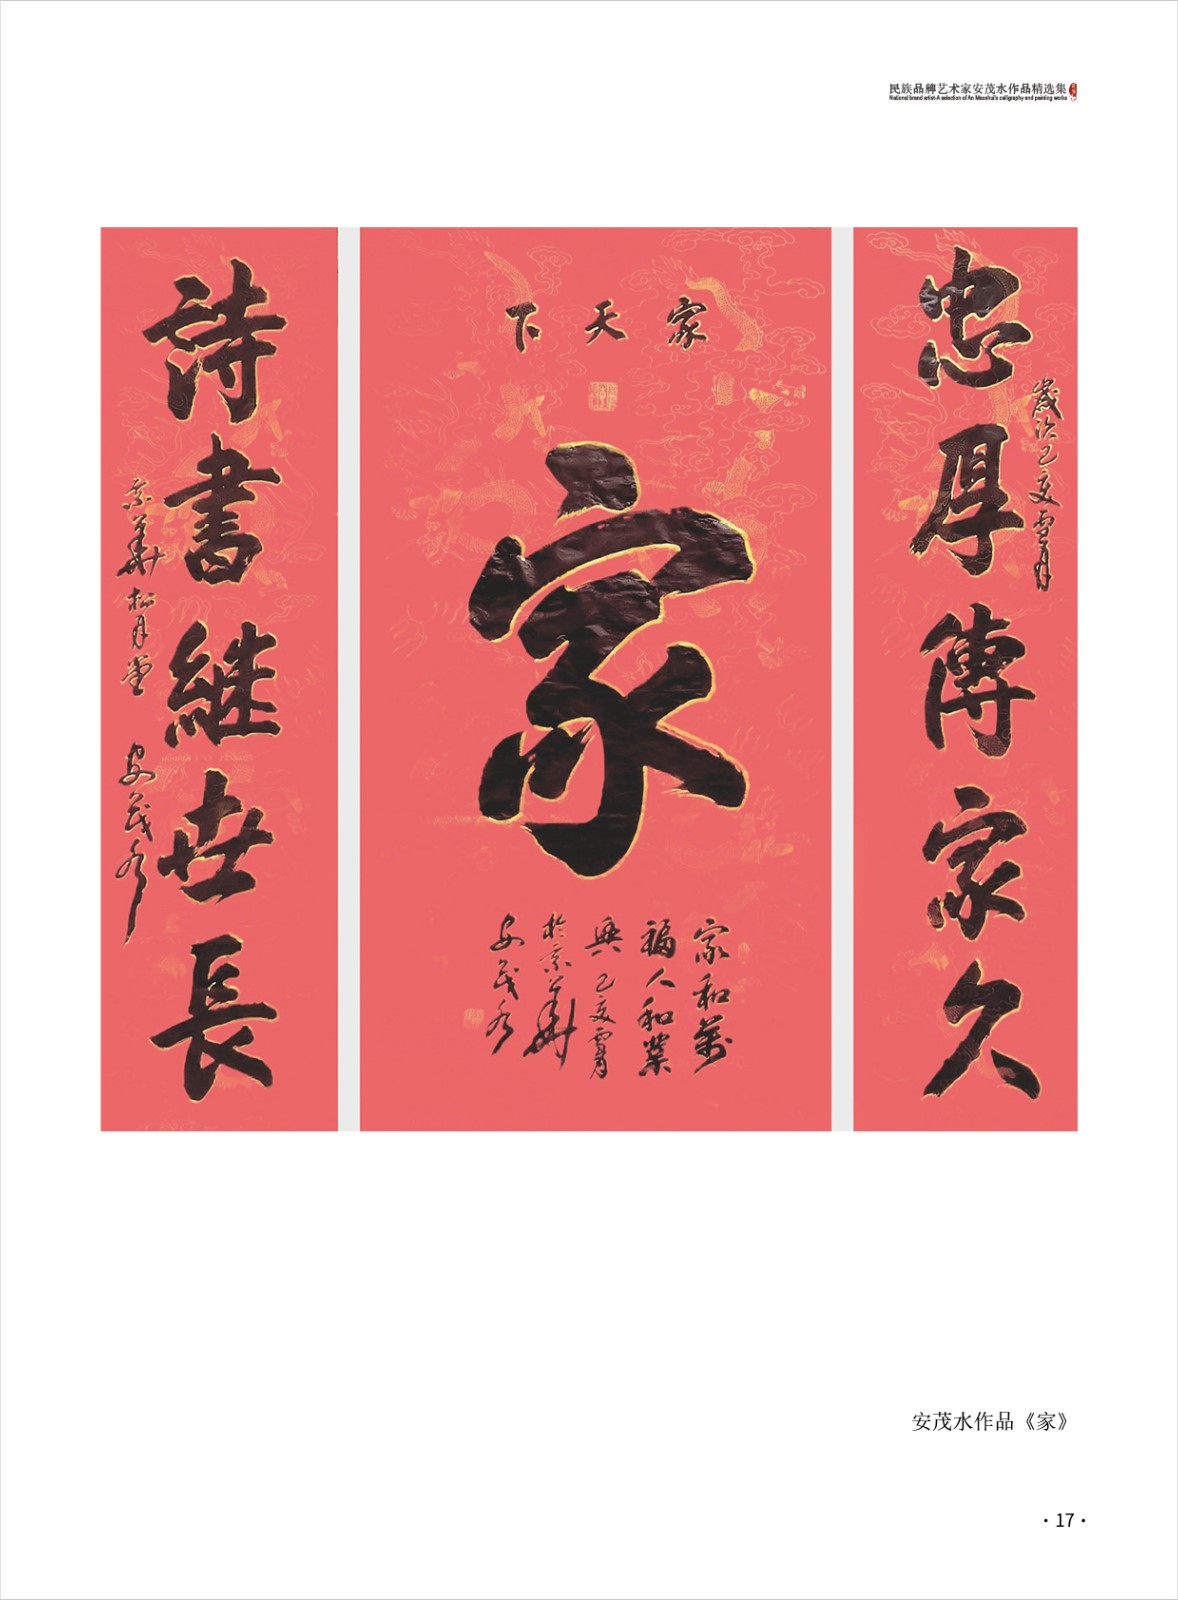 民族品牌艺术家安茂水作品精选集
National brand artist-A selection of An Maoshui's calligraphy and painting works
忠厚傳家久
歲次己亥雪月
家天下
家
家和萬
福人和業
興己亥雪月
於京華
安茂水
詩書繼世長
京華松月堂
安茂水
安茂水作品《家》
·17·